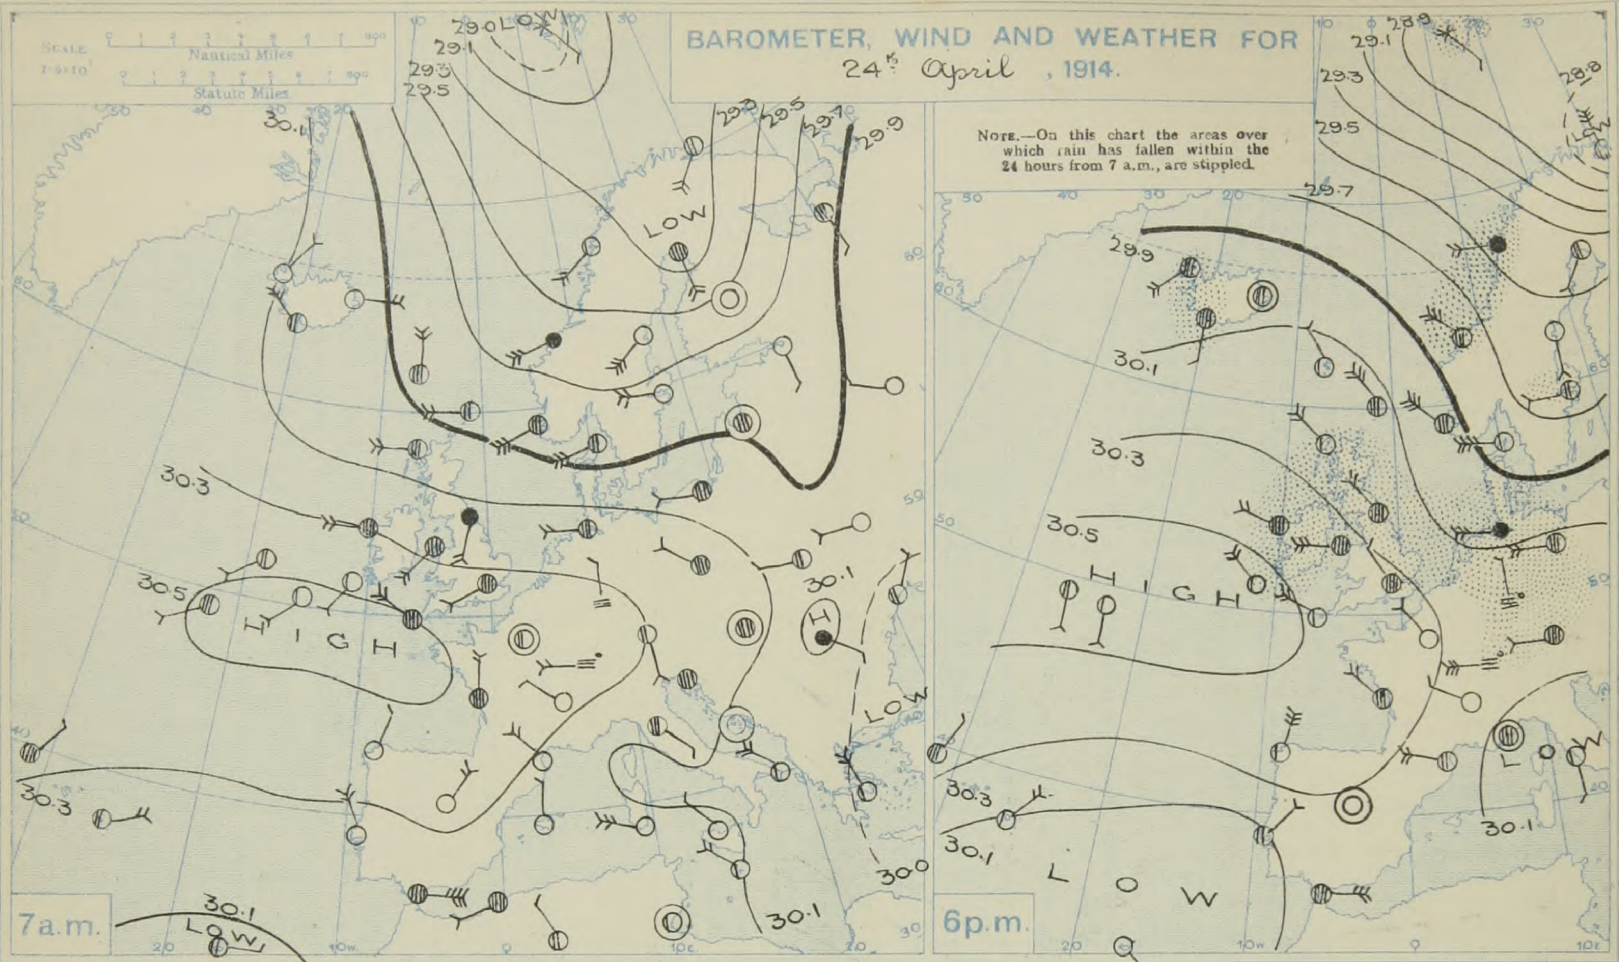 SCALE
Nautical Miles
Statute Miles
BAROMETER, WIND AND WEATHER FOR
24th April, 1914.
NOTE.—On this chart the areas over
which rain has fallen within the
24 hours from 7 a.m., are stippled.
29.0 LOW
29.1
29.3
29.5
29.3 29.5 29.7 29.9
LOW
30.3
30.5
HIGH
30.1
H
LOW
30.3
30.0
30.1
30.1
LOW
7a.m.
28.9
29.1
29.3
28.8
29.5
29.7
29.9
30.1
30.3
30.5
HIGH
LOW
30.3
30.1
30.1
LOW
6p.m.